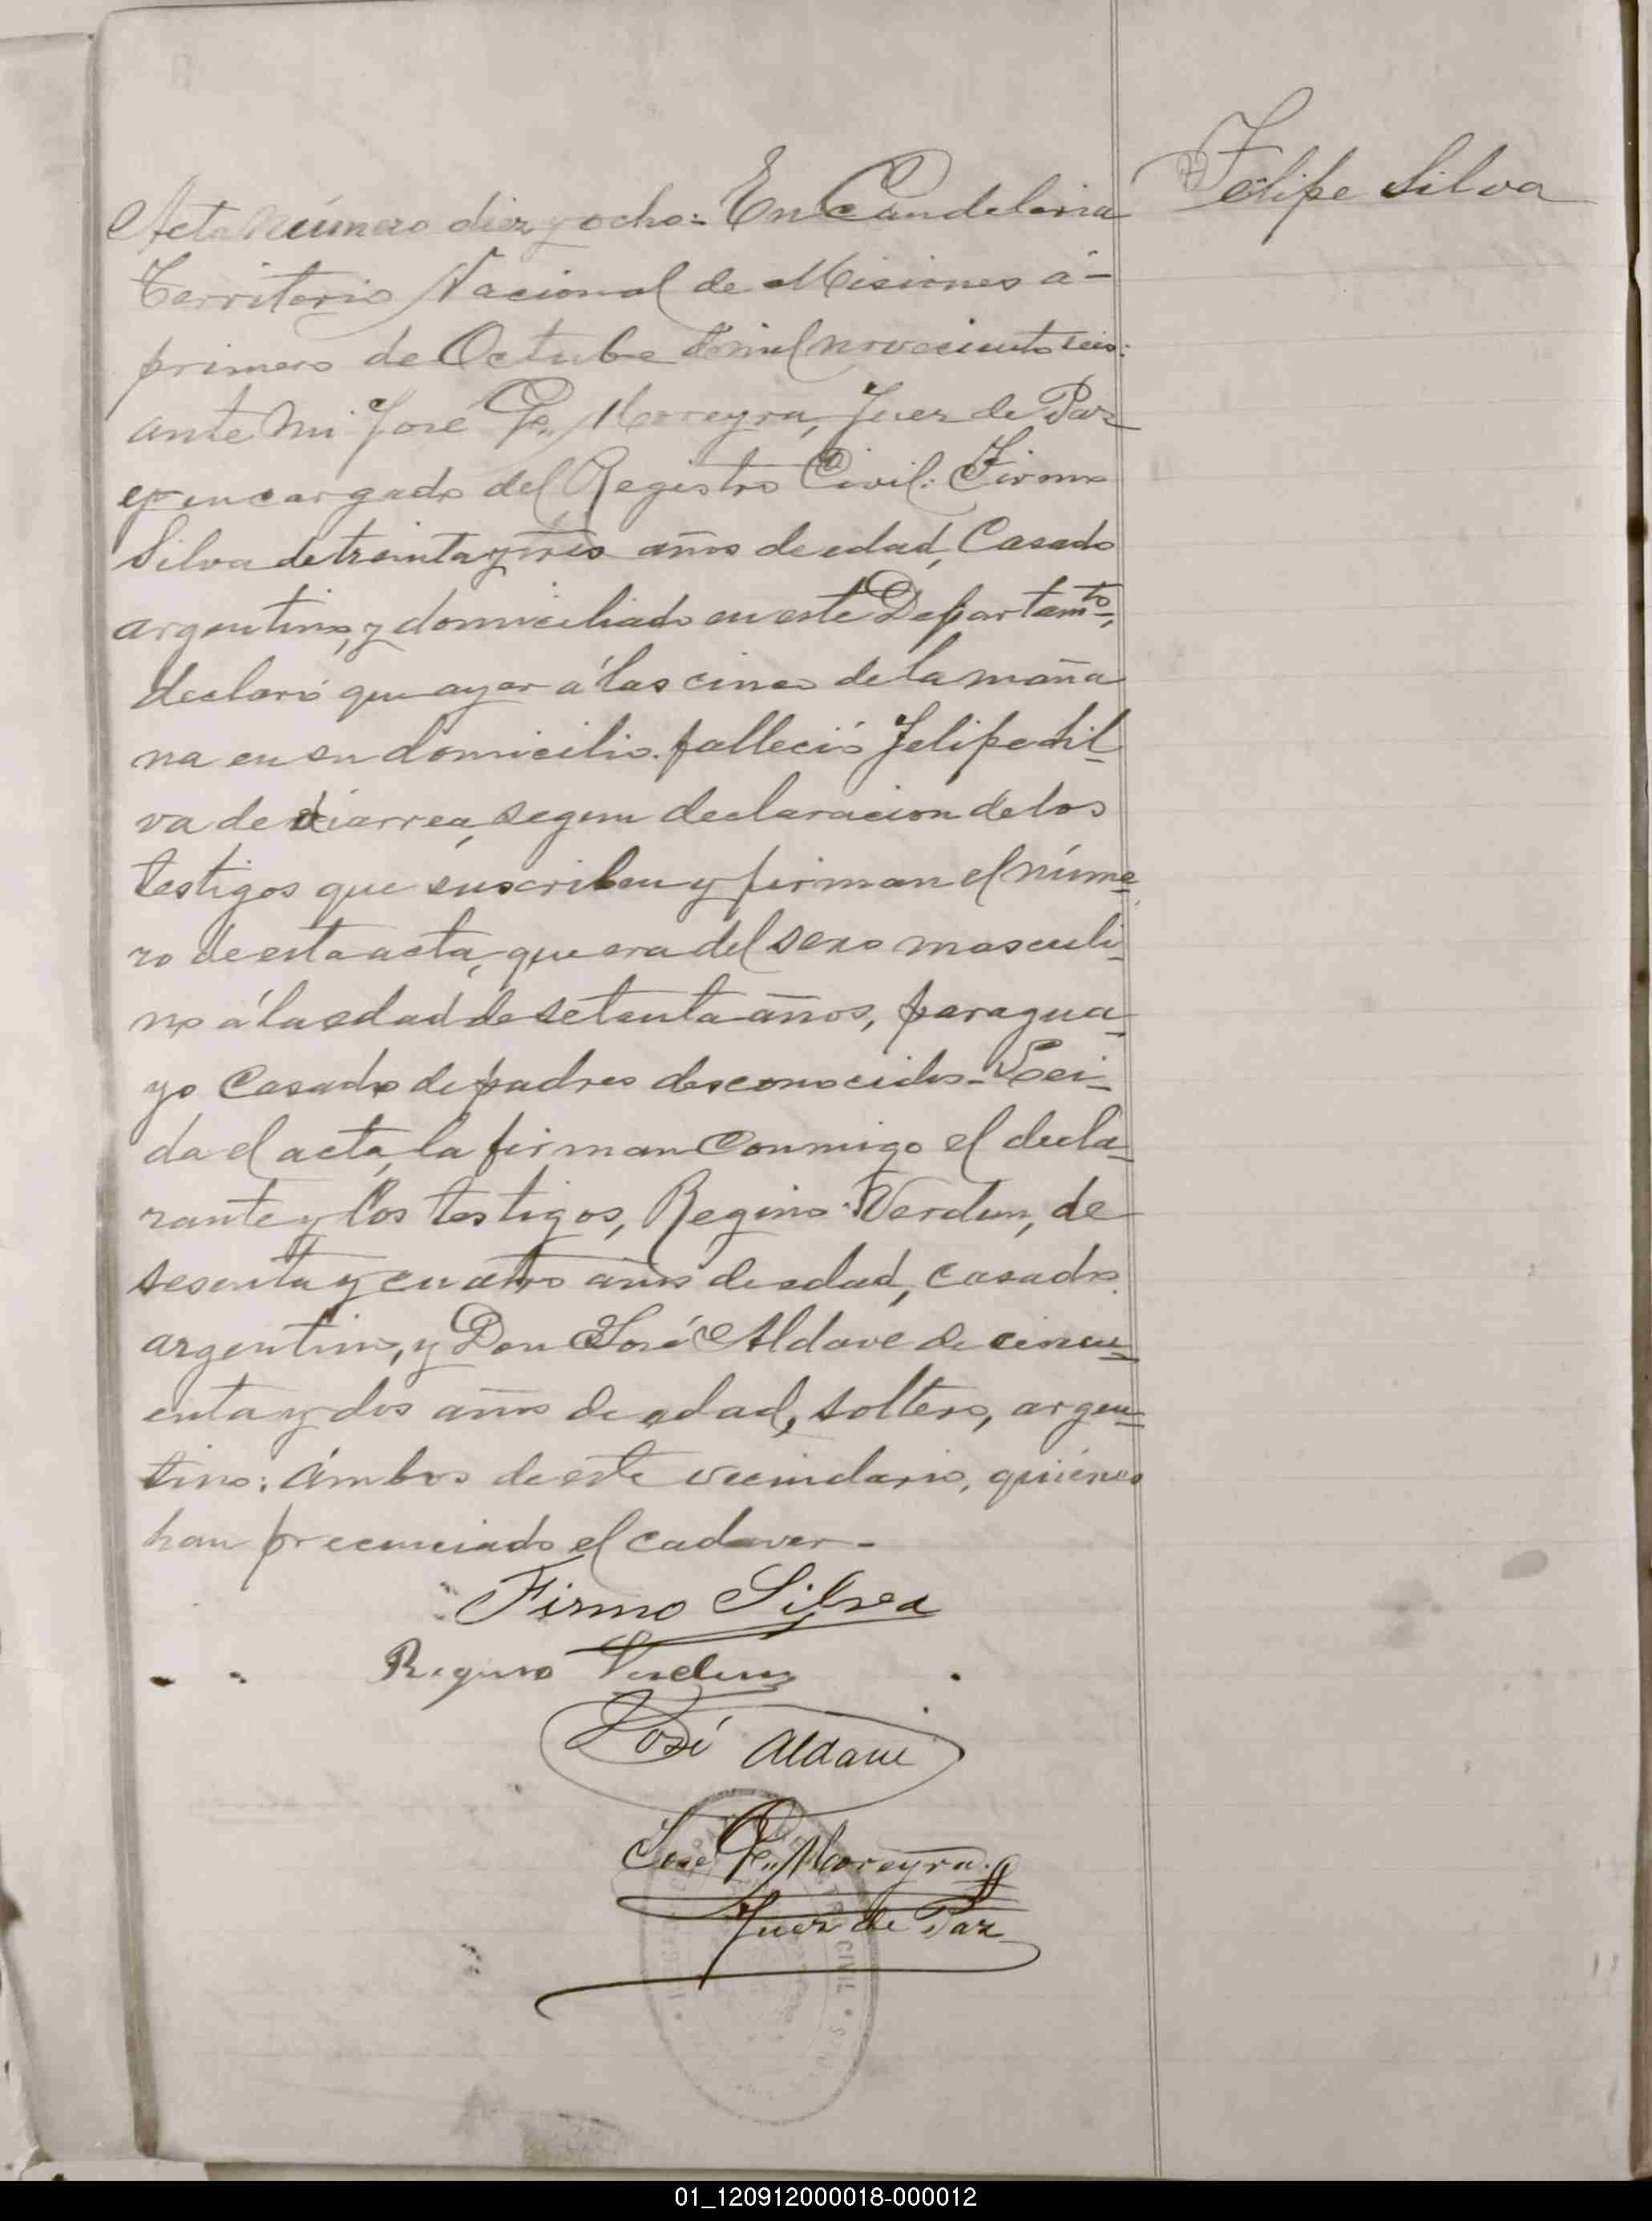 Felipe Silva
Acta número diez y ocho: En Candelaria
Territorio Nacional de Misiones á
primero de Octubre de mil novecientos seis:
ante mi José F. Moreyra, Juez de Paz
y encargado del Registro Civil: Firmo
Silva de treinta y tres años de edad, Casado
argentino, y domiciliado en este Departamto,
declaró que ayer á las cinco de la maña
na en su domicilio falleció Felipe Sil-
va de diarrea, segun declaracion de los
testigos que suscriben y firman el núme-
ro de esta acta, que era del sexo masculi-
no á la edad de setenta años, paragua-
yo Casado de padres desconocidos- Lei-
da el acta, la firman Conmigo el decla-
rante y los testigos, Regino Verdun, de
sesenta y cuatro años de edad, casado
argentino, y Don José Aldave de cincu-
enta y dos años de edad, soltero, argen-
tino: ámbos de este vecindario, quiénes
han precenciado el cadaver-
Firmo Silva
Regino Verdun
José Aldave
José F. Moreyra
Juez de Paz
CIVIL
01_120912000018-000012